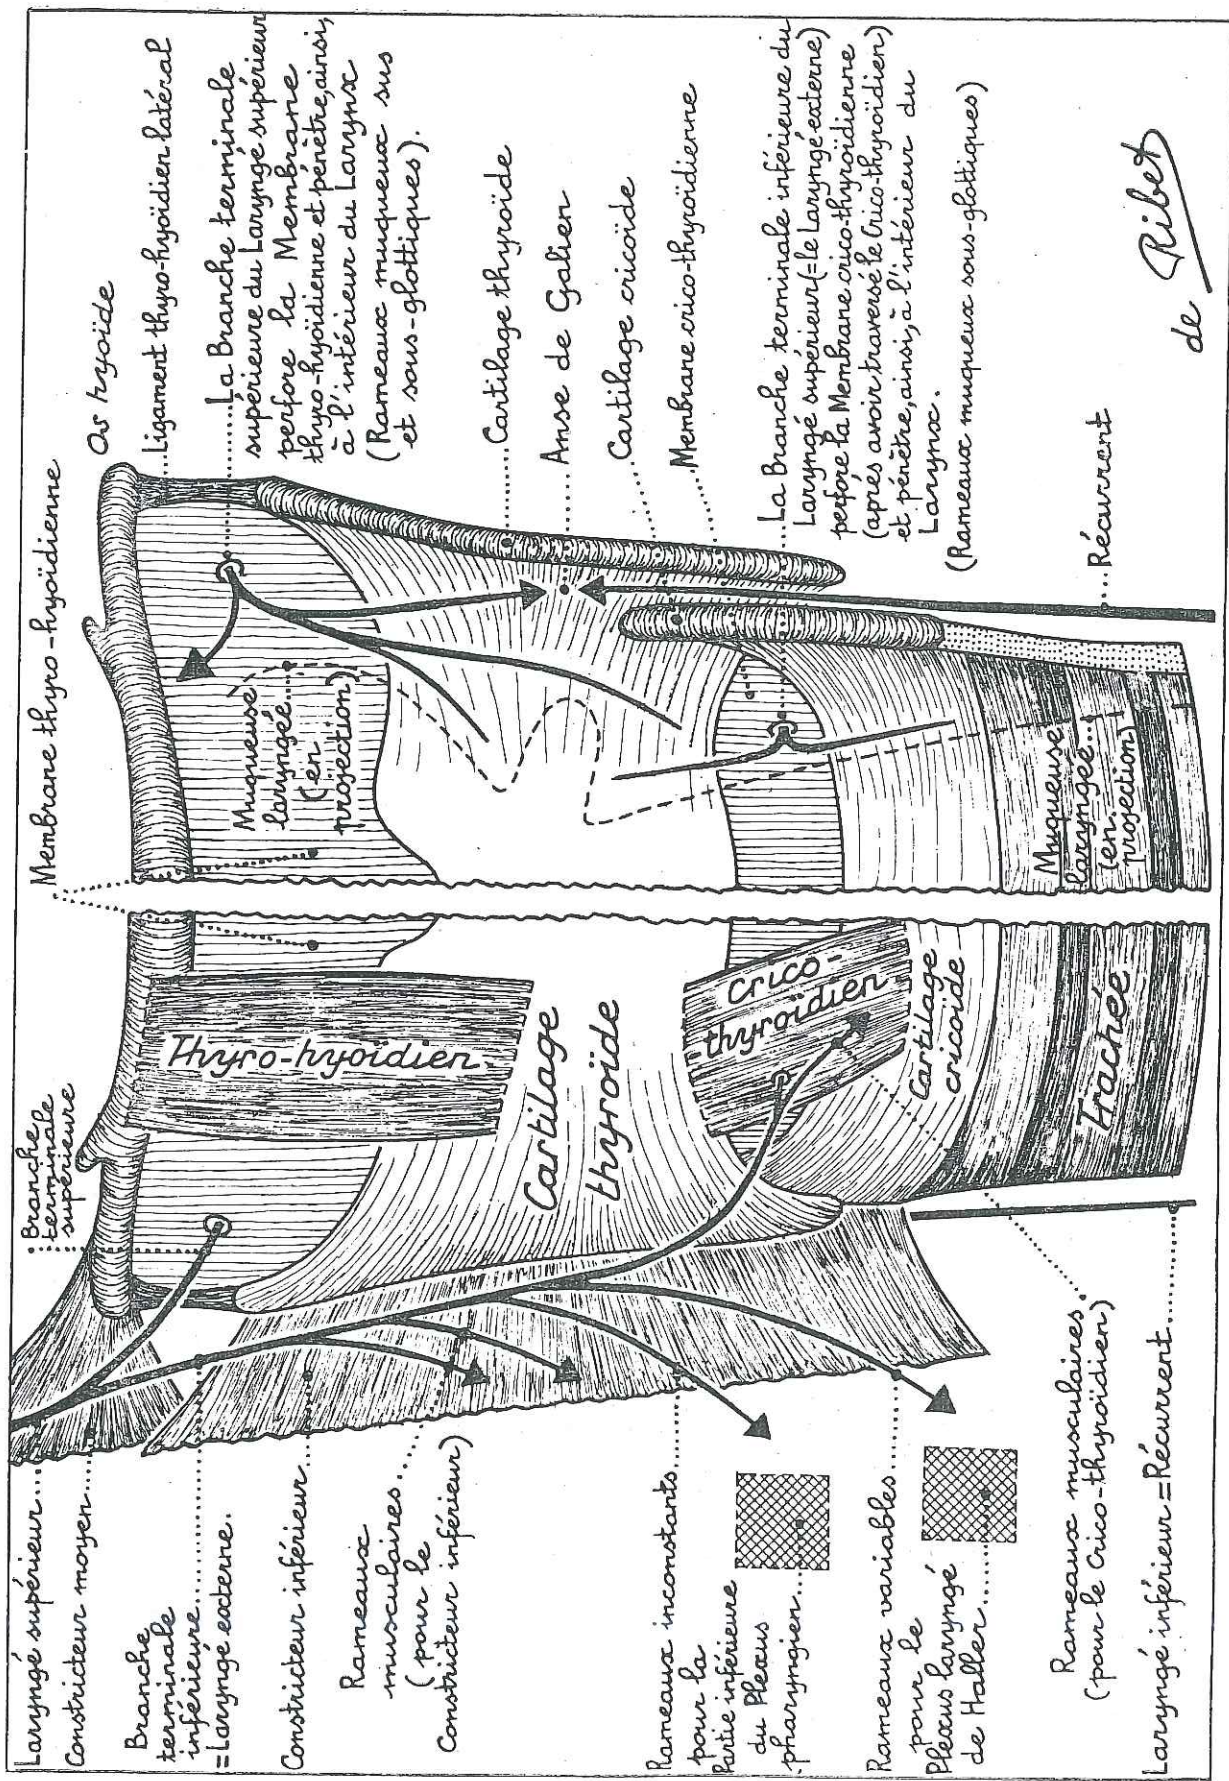 Laryngé supérieur
Constricteur moyen
Branche
terminale
inférieure
=Laryngé externe.
Constricteur inférieur
Rameaux
musculaires
(pour le
Constricteur inférieur)
Rameaux inconstants
pour la
Partie inférieure
du Plexus
pharyngien
Rameaux variables
pour le
Plexus laryngé
de Haller
Rameaux musculaires
(pour le Crico-thyroïdien)
Laryngé inférieur=Récurrent
Branche
terminale
supérieure
Thyro-hyoïdien
Cartilage
thyroïde
Crico-
thyroïdien
Cartilage
cricoïde
Trachée
Membrane thyro-hyoïdienne
Muqueuse
laryngée
(en
projection)
Muqueuse
laryngée
(en
projection)
Os hyoïde
Ligament thyro-hyoïdien latéral
La Branche terminale
supérieure du Laryngé supérieur
perfore la Membrane
thyro-hyoïdienne et pénètre, ainsi,
à l'intérieur du Larynx
(Rameaux muqueux sus
et sous-glottiques).
Cartilage thyroïde
Anse de Galien
Cartilage cricoïde
Membrane crico-thyroïdienne
La Branche terminale inférieure du
Laryngé supérieur(=le Laryngé externe)
perfore la Membrane crico-thyroïdienne
(après avoir traversé le Crico-thyroïdien)
et pénètre, ainsi, à l'intérieur du
Larynx.
(Rameaux muqueux sous-glottiques)
Récurrent
de Ribet